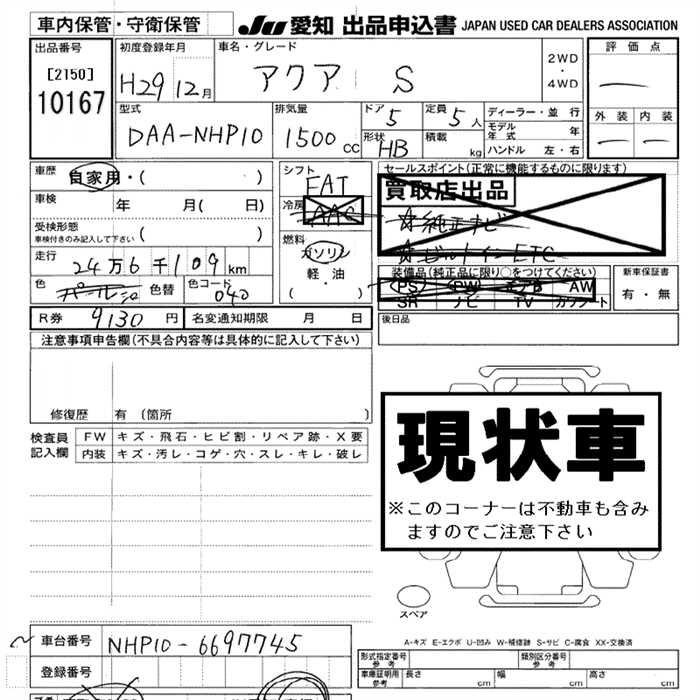 車内保管・守衛保管
JU 愛知 出品申込書 JAPAN USED CAR DEALERS ASSOCIATION
出品番号
[2150]
10167
初度登録年月
H29 12月
車名・グレード
アクア S
2WD
・
4WD
評価点
外装 内装
型式
DAA-NHP10
排気量
1500 CC
ドア 5
形状 HB
定員 5人
積載 kg
ディーラー・並行
モデル年式 年
ハンドル 左・右
車歴 自家用・( )
車検 年 月( 日)
受検形態
車検付きのみ記入して下さい ( )
走行 24万6千109km
色 パール 色替 色コード 040
シフト
FAT
冷房 AAC
燃料
ガソリン
軽・油
( )
セールスポイント(正常に機能するものに限ります)
買取店出品
☆純正ナビ
☆ビルトインETC
装備品(純品に限り○をつけてください)
PS PW エアB AW
SR ナビ TV カワシート
新車保証書
有・無
R券 9130 円 名変通知期限 月 日
後日品
注意事項申告欄(不具合内容等は具体的に記入して下さい)
修復歴 有(箇所 )
検査員記入欄
FW キズ・飛石・ヒビ割・リペア跡・X要
内装 キズ・汚レ・コゲ・穴・スレ・キレ・破レ
現状車
※このコーナーは不動車も含み
ますのでご注意下さい
スペア
A-キズ E-エクボ U-凹み W-補修跡 S-サビ C-腐食 XX-交換済
車台番号 NHP10-6697745
登録番号
形式指定番号 参考 類別区分番号 参考
車庫証明用 参考 長さ cm 幅 cm 高さ cm